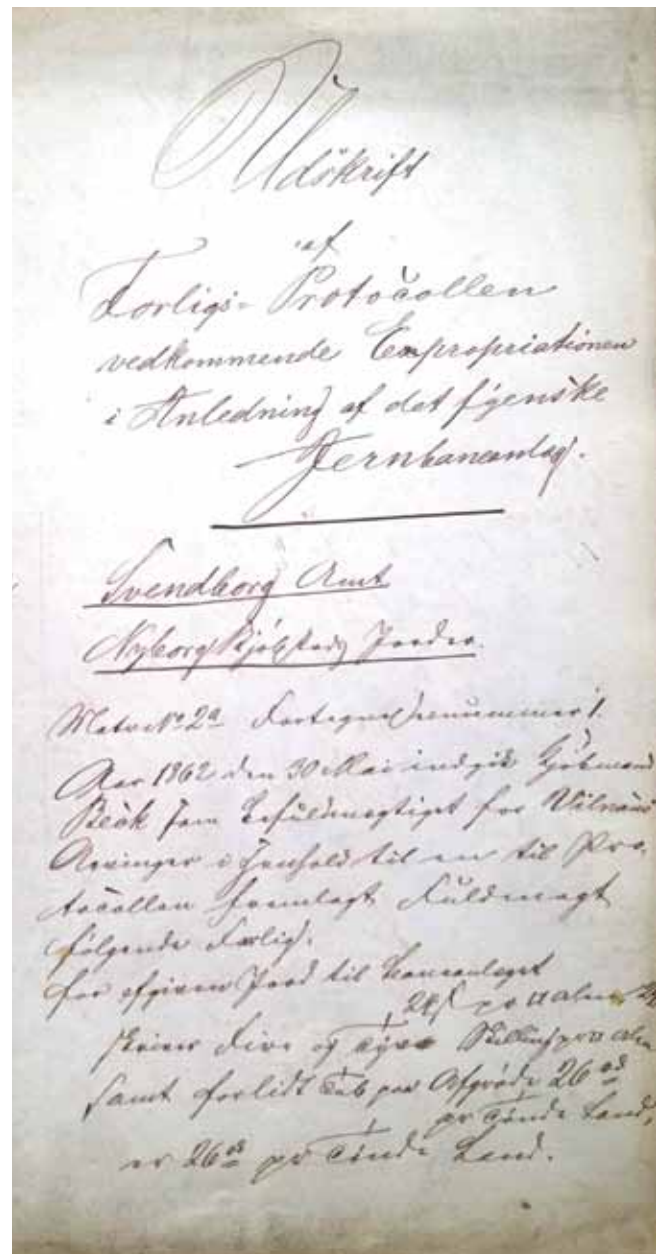 Udskrift
af
Forligs-Protocollen
vedkommende Expropriationen
i Anledning af det fyenske
Jernbaneanlæg.
Svendborg Amt
Nyborg Kjøbstads Jorder.
Matr. № 2a Fortegnelsenummer 1.
Aar 1862 den 30 Mai indgik Kjøbmand
Beck som befuldmægtiget for
Arvinger i Henhold til en til Pro-
tocollen fremlagt Fuldmagt
følgende Forlig.
for afgiven Jord til Baneanlæget
24 ß pr □ Alen,
skriver Fire og Tyve Skilling pr □ Alen
samt for lidt Tab paa Afgrøde 26 rd
pr Tønde Land,
er 26 rd pr Tønde Land.